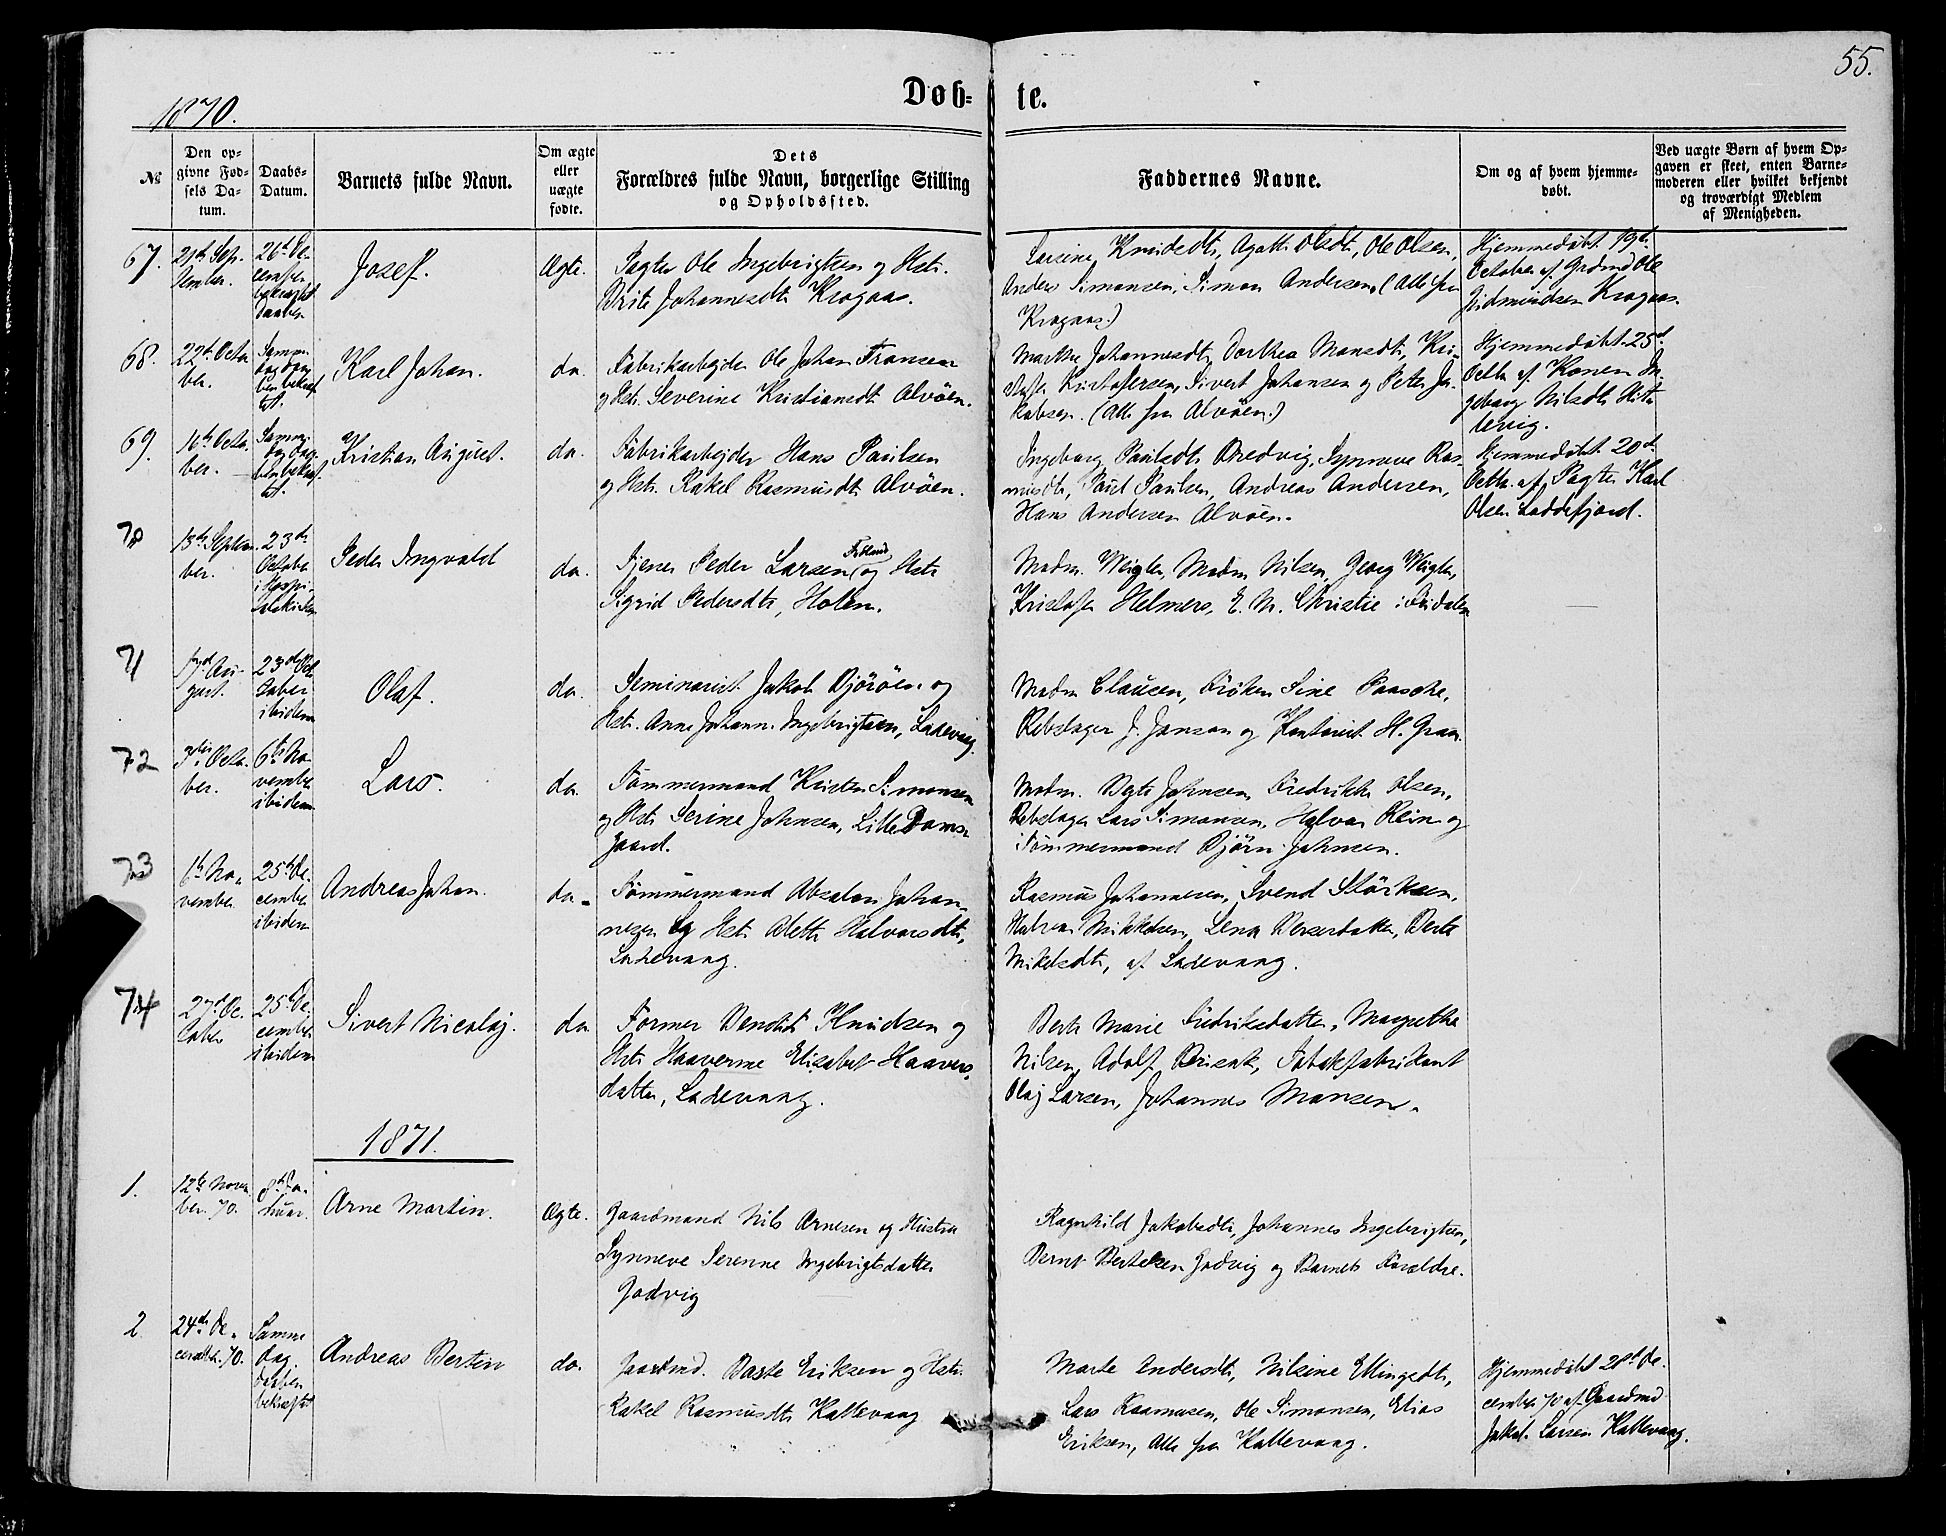 55.
Døb- te.
1870.
№
Den op-
givne Fød-
sels Da-
tum.
Daabs-
Datum.
Barnets fulde Navn.
Om ægte
eller
uægte
fødte.
Dets
Forældres fulde Navn, borgerlige Stilling
og Opholdssted.
Faddernes Navne.
Om og af hvem hjemme-
døbt.
Ved uægte Børn af hvem Op-
gaven er skeet, enten Barne-
moderen eller hvilket bekjendt
og troværdigt Medlem
af Menigheden.
67.
21de Sep-
tember.
26d De-
cember
bekræftet
Daaben
Josef.
Ægte.
Pagter Ole Ingebrigtsen og Hstr.
Brite Johannesdtr Kragaas.
Larsine Knudsdtr, Agatte Olsdtr, Ole Olsen,
Anders Simonsen, Simon Andersen. (Alle fra
Kragaas.)
Hjemmedøbt 19de
October af Grdmd Ole
Gudmundsen Kragaas.
68.
22de Octo-
ber.
Samme
Dag Daa-
ben bekræf-
tet.
Karl Johan.
do.
Fabrikarbejder Ole Johan Fransen
og Hstr. Severine Kristiansdtr Alvöen.
Marthe Johannesdtr, Dorthea Monsdtr, Kri-
stofer Kristofersen, Sivert Johansen og Peter Ja-
kobsen. (Alle fra Alvöen.)
Hjemmedøbt 25d
Octbr af Konen In-
geborg Nilsdtr
69.
16de Octo-
ber.
Samme
Dag Daa-
ben bekræf-
tet.
Kristian August.
do.
Fabrikarbejder Hans Paulsen
og Hstr. Rakel Rasmusdtr Alvöen.
Ingeborg Paulsdtr Bredvig, Synneve Ras-
musdtr, Paul Paulsen, Andreas Andersen,
Hans Andersen Alvöen.
Hjemmedøbt 20de
Octbr. af Pagter Karl
Olsen Loddefjord.
70
13de Septem-
ber.
23de
October
i Hospi-
talskirken
Peder Ingvald
do.
Tjener Peder Larsen og Hstr
Sigrid Pedersdtr, Holen.
Madm. Weigler, Madm Nilsen, Georg Weigler,
Kristofer Helmers, E. M. Christie
71
17d Au-
gust.
23de Oc-
tober
ibidem
Olaf.
do.
Seminarist Jakob Björöen og
Hstr. Anne Johann. Ingebrigtsen, Ladevaag.
Madm Clausen, Frøken Sine Paasche,
Rebslager J. Janson og Kontorist H. Gran.
72
3die Octo-
ber.
6te No-
vember
ibidem
Lars.
do.
Tømmermand Kristen Simonsen
og Hstr Serine Johnsen, Lille Dams-
gaard.
Madm. Berte Johnsen, Fredrikke Olsen,
Rebslager Lars Simonsen, Halvor Rein og
Tømmermand Bjørn Johnsen.
73
6te No-
vember
25de De-
cember
ibidem
Andreas Johan.
do.
Tømmermand Absalon Johan-
nesen og Hstr Alette Halvorsdtr,
Ladevaag.
Rasmus Johannesen, Svend Störksen,
Halvor Mikkelsen, Lena Berserdatter, Berte
Mikelsdtr, af Ladevaag.
74
27d Oc-
tober
25de De-
cember
ibidem
Sivert Nicolaj.
do
Former Bendikt Knudsen og
Hstr Haaverine Elisabet Haavers-
datter, Ladevaag.
Berte Marie Fredriksdatter, Margrethe
Nilsen, Adolf, Tobaksfabrikant
Olaj Larsen, Johannes Monsen.
1871.
1.
12te Novem-
ber. 70.
8de Ja-
nuar.
Arne Martin.
Ægte.
Gaardmand Nils Arnesen og Hustru
Synneve Serenne Ingebrigtsdatter
Godvig
Ragnhild Jakobsdtr, Johannes Ingebrigtsen,
Bernt Bertelsen Godvig og Barnets Forældre.
2.
24de De-
cember. 70.
Samme
Dag
Daaben
bekræftet
Andreas Bertin
do.
Gaardmd. Baste Eriksen og Hstr.
Rakel Rasmusdtr Kallevaag
Marte Andersdtr, Nilsine Ellingsdtr,
Lars Rasmusen, Ole Simonsen, Elias
Eriksen, Alle fra Kallevaag.
Hjemmedøbt 28de De-
cember 70 af Gaardmd
Jakob Larsen Kallevaag.